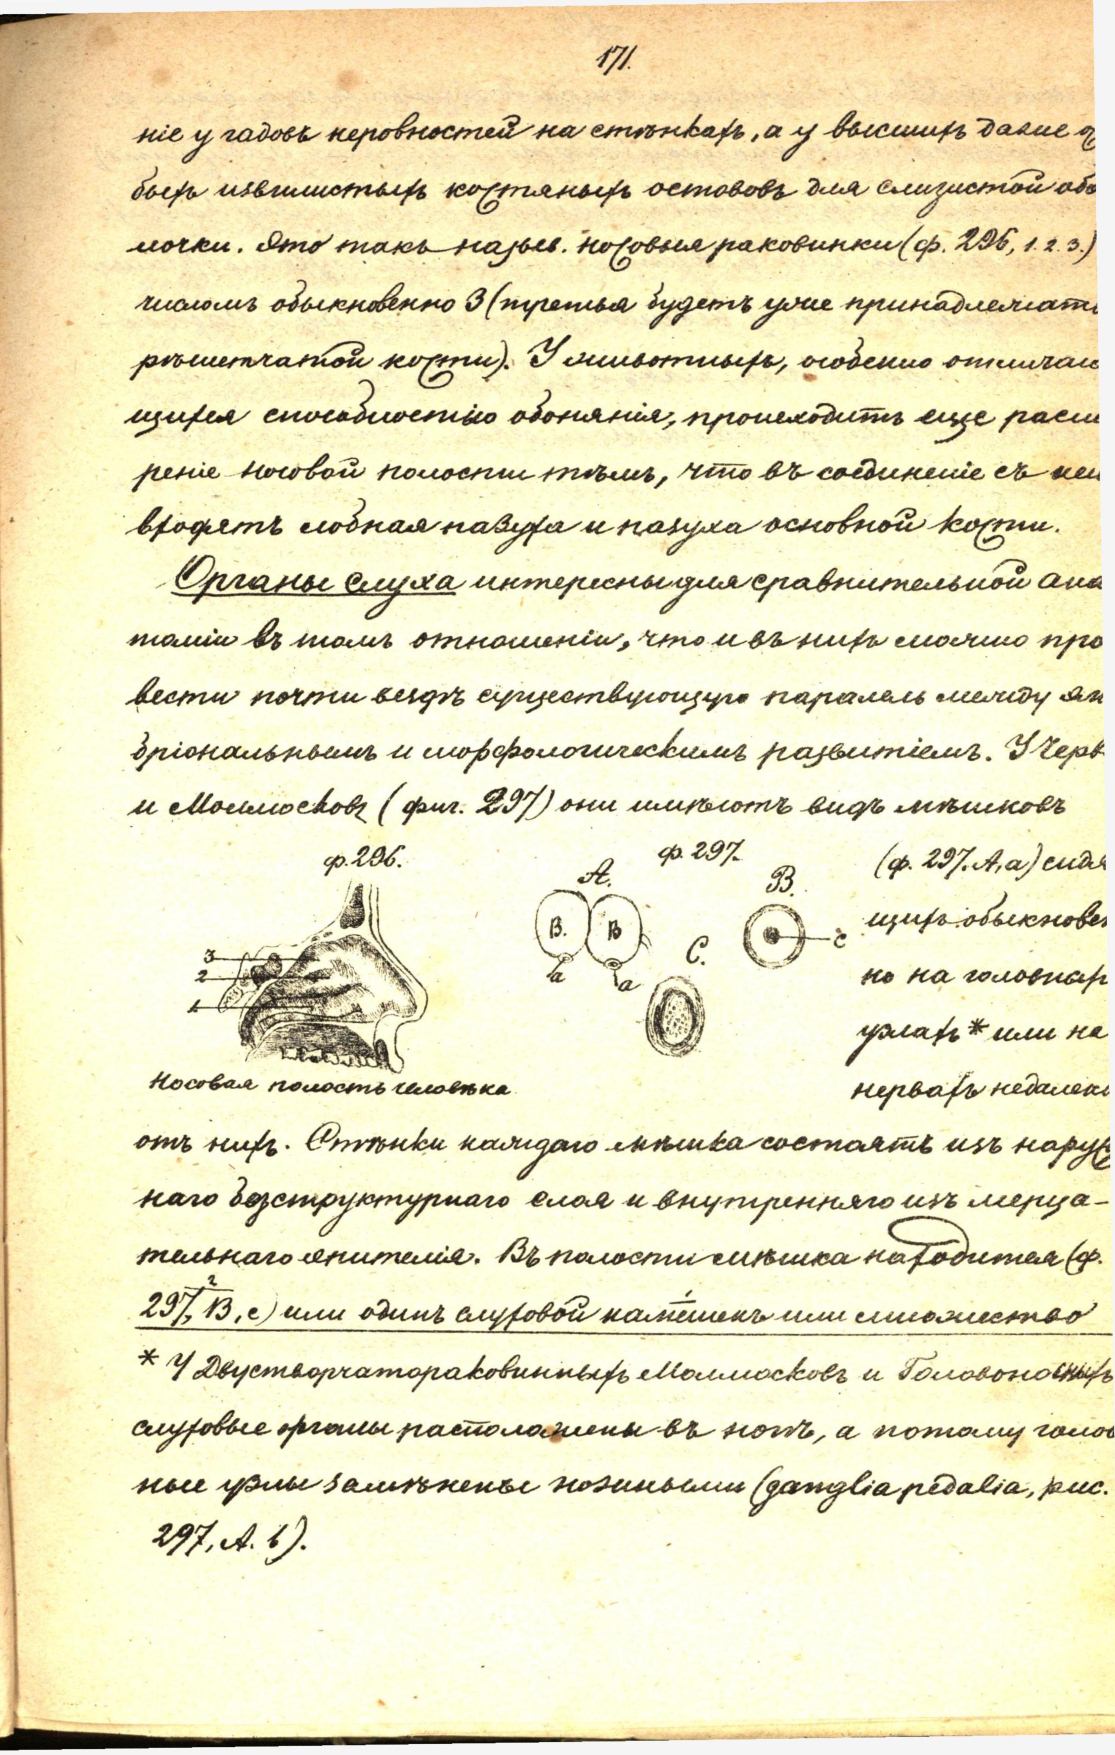 171.
ніе у гадовъ неровностей на стѣнкахъ, а у высшихъ далѣе о
быхъ извилистыхъ костяныхъ остововъ для слизистой обо
лочки. Это такъ назыв. носовыя раковинки (ф. 296, 1. 2. 3.)
числомъ обыкновенно 3 (третья будетъ уже принадлежать
рѣшетчатой кости). У животныхъ, особенно отличаю
щихся способностію обонянія, происходитъ еще расши
реніе носовой полости тѣмъ, что въ соединеніе съ ней
входятъ лобная пазуха и пазуха основной кости.
Органы слуха интересны для сравнительной ана
томіи въ томъ отношеніи, что и въ нихъ можно про
вести почти вездѣ существующую паралель между эм
бріональнымъ и морфологическимъ развитіемъ. У Черв
и Моллюсковъ (фиг. 297) они имѣютъ видъ мѣшковъ
ф. 296.
ф. 297.
(ф. 297. А, а) сидя
А.
В.
В.
В
щихъ обыкновен
с
С.
3
2
1
а
а
но на головныхъ
узлахъ * или на
Носовая полость человѣка
нервахъ недалеко
отъ нихъ. Стѣнки каждаго мѣшка состоятъ изъ наруж
наго безструктурнаго слоя и внутренняго изъ мерца-
тельнаго эпителія. Въ полости мѣшка находится (ф.
297, В, с) или одинъ слуховой камешекъ или множество
2
* У Двустворчатораковинныхъ Моллюсковъ и Головоногихъ
слуховые органы расположены въ ногѣ, а потому голов
ные узлы замѣнены ножными (ganglia pedalia, рис.
297, А. b).